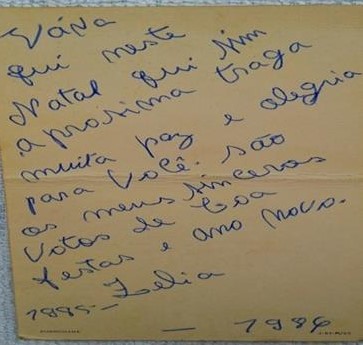 Vána
qui neste
Natal qui sim
aprosima traga
muita paz e alegria
para você. são
os meus sinceros
votos de boa
festas e ano novo.
Zelia
1985-
- 1986